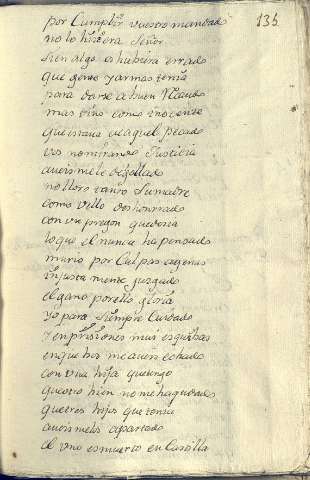 135
por Cumplir vuestro mandado
no lo hiziera Señor
si en algo os hubiera errado
que gente y armas tenia
para darse a buen Recaudo
mas vino como inocente
que estaua de aquel pecado
vos no mirando Justicia
aueis mele degollado
no lloro tanto su madre
como verlo deshonrrado
con un pregon que dezia
lo que el nunca ha pensado
murio por Culpas agenas
injusta mente juzgado
el gano por ello gloria
yo para siempre Cuidado
y en prisiones mui esquibas
en que vos me aueis echado
con una hija que tengo
que otro bien no me ha quedado
que tres hijos que tenia
aueis melos apartado
el uno es muerto en Castilla